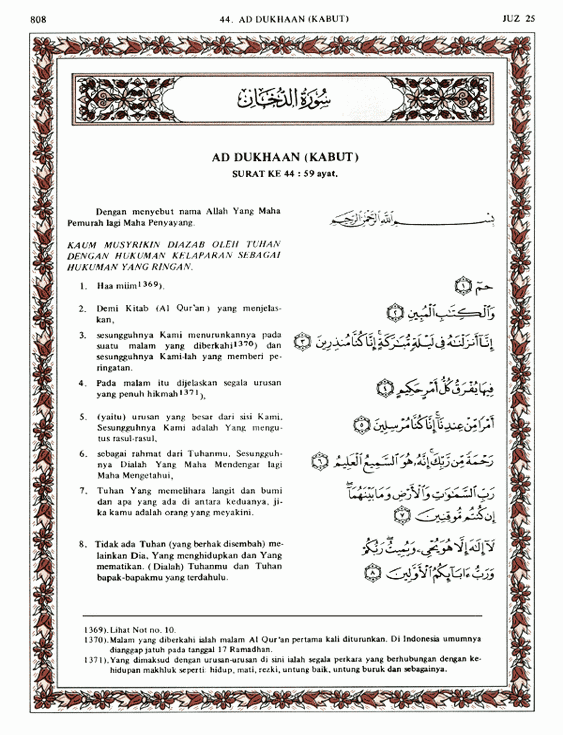 808 44. AD DUKHAAN (KABUT) JUZ 25
سُورَةُ الدُّخَانِ
AD DUKHAAN (KABUT)
SURAT KE 44 : 59 ayat.
Dengan menyebut nama Allah Yang Maha
Pemurah lagi Maha Penyayang.
بِسْمِ اللَّهِ الرَّحْمَٰنِ الرَّحِيمِ
KAUM MUSYRIKIN DIAZAB OLEH TUHAN
DENGAN HUKUMAN KELAPARAN SEBAGAI
HUKUMAN YANG RINGAN.
1. Haa miim1369).
حمٓ ١
2. Demi Kitab (Al Qur'an) yang menjelas-
kan,
وَٱلْكِتَٰبِ ٱلْمُبِينِ ٢
3. sesungguhnya Kami menurunkannya pada
suatu malam yang diberkahi1370) dan
sesungguhnya Kami-lah yang memberi pe-
ringatan.
إِنَّآ أَنزَلْنَٰهُ فِى لَيْلَةٍ مُّبَٰرَكَةٍ إِنَّا كُنَّا مُنذِرِينَ ٣
4. Pada malam itu dijelaskan segala urusan
yang penuh hikmah1371),
فِيهَا يُفْرَقُ كُلُّ أَمْرٍ حَكِيمٍ ٤
5. (yaitu) urusan yang besar dari sisi Kami.
Sesungguhnya Kami adalah Yang mengu-
tus rasul-rasul,
أَمْرًا مِّنْ عِندِنَآ إِنَّا كُنَّا مُرْسِلِينَ ٥
6. sebagai rahmat dari Tuhanmu. Sesungguh-
nya Dialah Yang Maha Mendengar lagi
Maha Mengetahui,
رَحْمَةً مِّن رَّبِّكَ إِنَّهُۥ هُوَ ٱلسَّمِيعُ ٱلْعَلِيمُ ٦
7. Tuhan Yang memelihara langit dan bumi
dan apa yang ada di antara keduanya, ji-
ka kamu adalah orang yang meyakini.
رَبِّ ٱلسَّمَٰوَٰتِ وَٱلْأَرْضِ وَمَا بَيْنَهُمَآ
إِن كُنتُم مُّوقِنِينَ ٧
8. Tidak ada Tuhan (yang berhak disembah) me-
lainkan Dia, Yang menghidupkan dan Yang
mematikan. (Dialah) Tuhanmu dan Tuhan
bapak-bapakmu yang terdahulu.
لَآ إِلَٰهَ إِلَّا هُوَ يُحْىِۦ وَيُمِيتُ رَبُّكُمْ
وَرَبُّ ءَابَآئِكُمُ ٱلْأَوَّلِينَ ٨
1369). Lihat Not no. 10.
1370). Malam yang diberkahi ialah malam Al Qur'an pertama kali diturunkan. Di Indonesia umumnya
dianggap jatuh pada tanggal 17 Ramadhan.
1371). Yang dimaksud dengan urusan-urusan di sini ialah segala perkara yang berhubungan dengan ke-
hidupan makhluk seperti: hidup, mati, rezki, untung baik, untung buruk dan sebagainya.